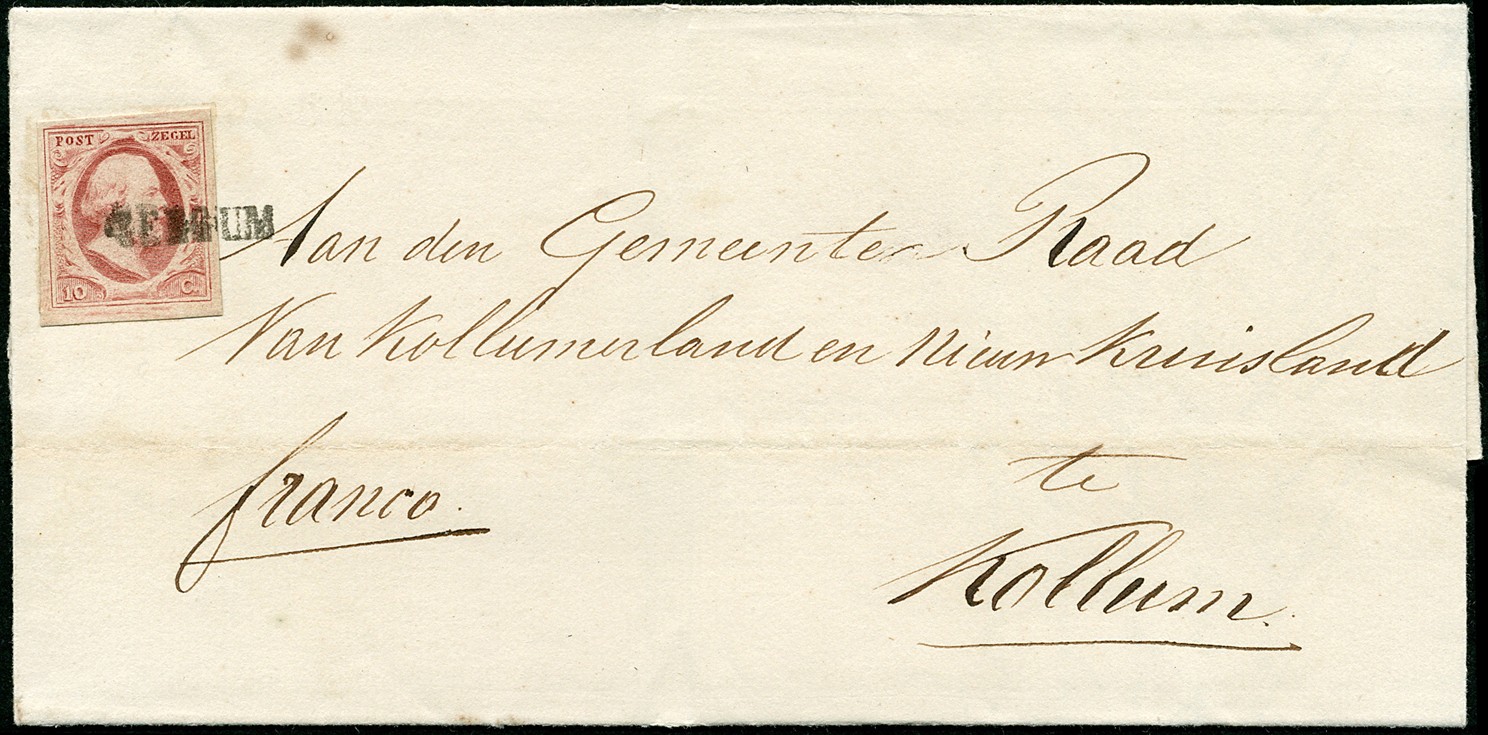 POST ZEGEL
10 C.
Aan den Gemeenten Raad
Van Kollumerland en Nieuw Kruisland
franco.
te
Kollum.